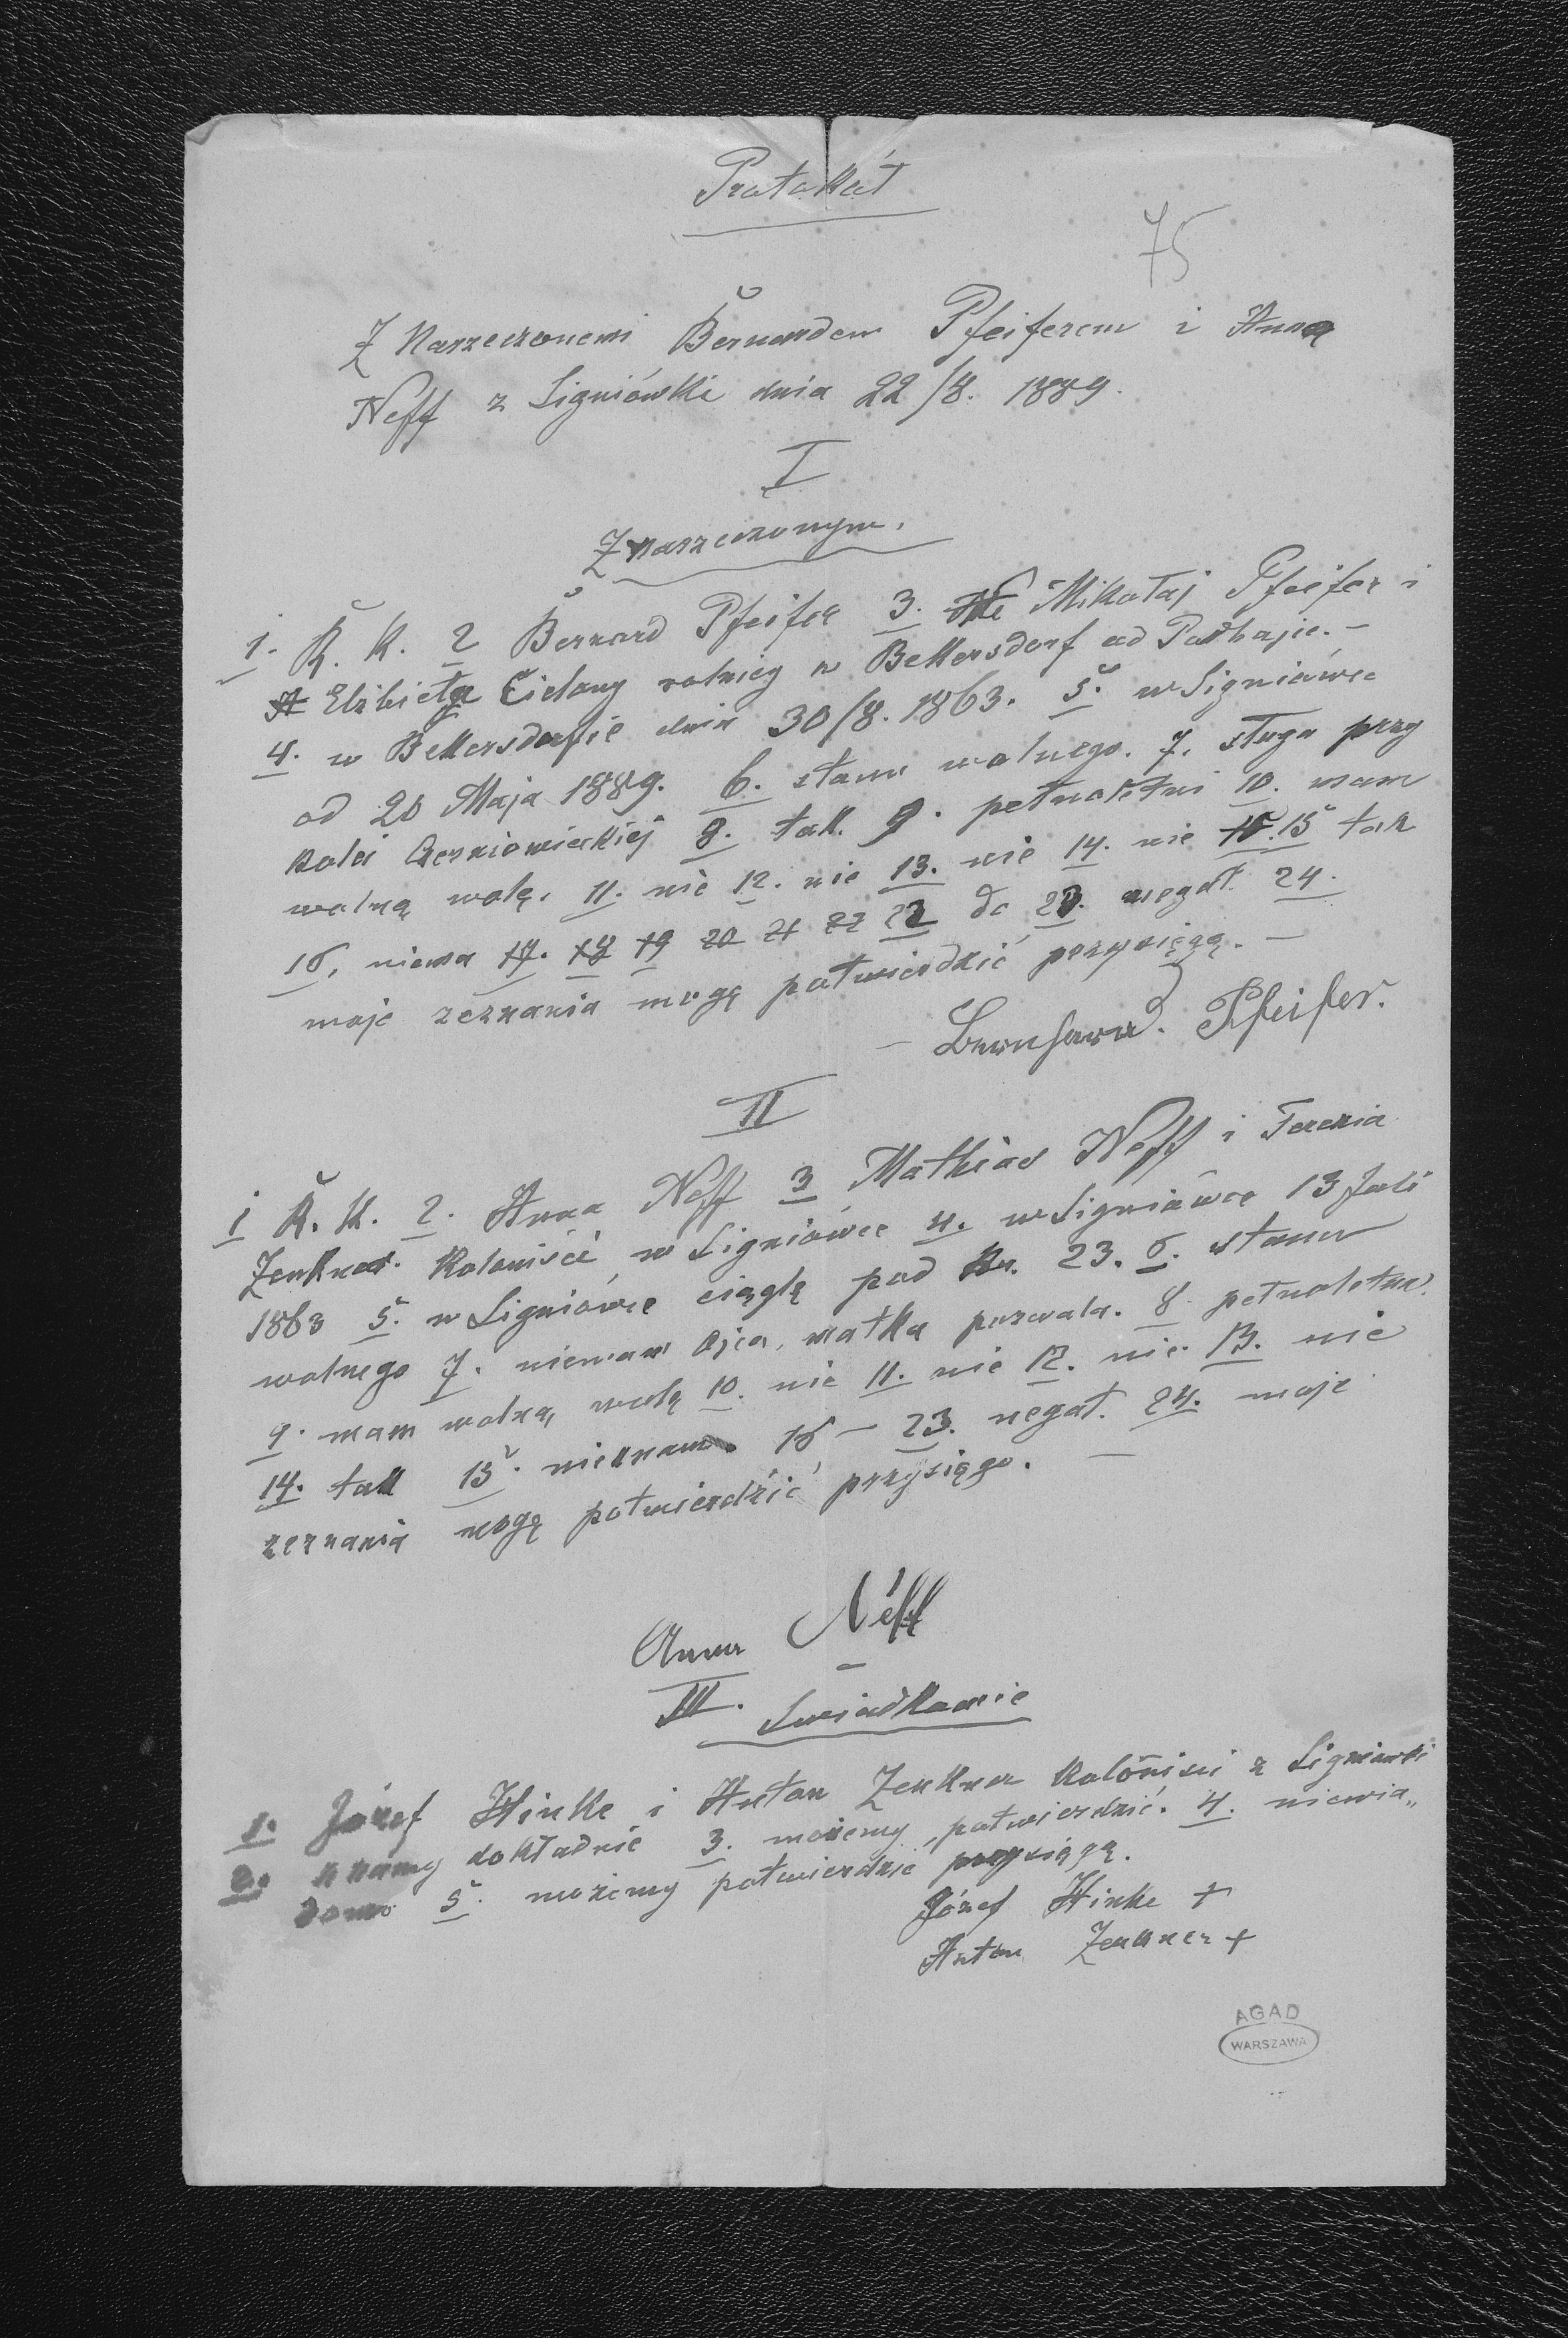 Protokół
75
Z Narzeczonemi Bernardem Pfeiferem i Anną
Neff z Ligniówki dnia 22/8. 1889.
I
Z narzeczonym.
1. R. K. 2 Bernard Pfeifer 3. Mikołaj Pfeifer i
Elzbieta Cielany rolnicy w Bekersdorf ad Podhajce. –
4. w Bekersdorfie dnia 30/8. 1863. 5. w Ligniówce
od 20 Maja 1889. 6. stanu wolnego. 7. sługa przy
kolei Czerniowieckiej 8. tak. 9. pełnoletni 10. mam
wolną wolę. 11. nie 12. nie 13. nie 14. nie 15. 15 tak
16, niema 17. 18 19 20 21 22 22 do 23. negat. 24.
moje zeznania mogę potwierdzić przysięgą. –
– Bernhard. Pfeifer.
II
1 R. K. 2. Anna Neff 3 Mathias Neff i Terezia
Zenkner. Koloniści w Ligniówce 4. w Ligniówce 13 Juli
1863 5. w Ligniówce ciągle pod Nr. 23. 6. stanu
wolnego 7. niemam ojca, matka pozwala. 8 pełnoletna
9. mam wolną wolę 10. nie 11. nie 12. nie. 13. nie
14. tak 15. nieknam 16 – 23. negat. 24. moje
zeznania mogę potwierdzić przysięgo. –
Anna Neff
III. Swiadkowie
1. Józef Hinke i Anton Zenkner kolonisci z Ligniówki
2. znamy dokładnie 3. możemy potwierdzić. 4. niewia„
domo 5. możemy potwierdzić przysięgą.
Józef Hinke +
Anton Zenkner +
AGAD
WARSZAWA